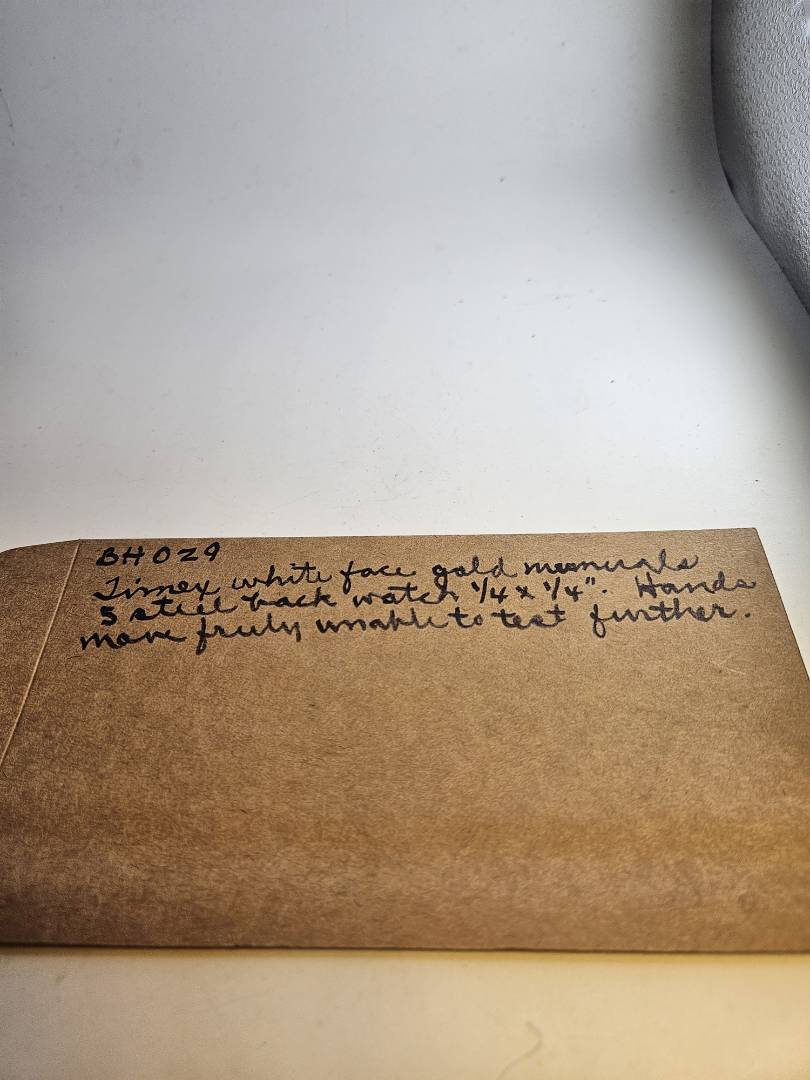 BH029
Timex white face gold mumurals
5 steel back watch 1/4 x 1/4". Hands
move freely unable to test further.